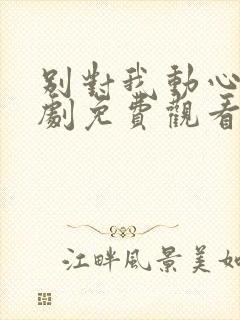 別對我動心
劇免費觀看
江畔風景美如